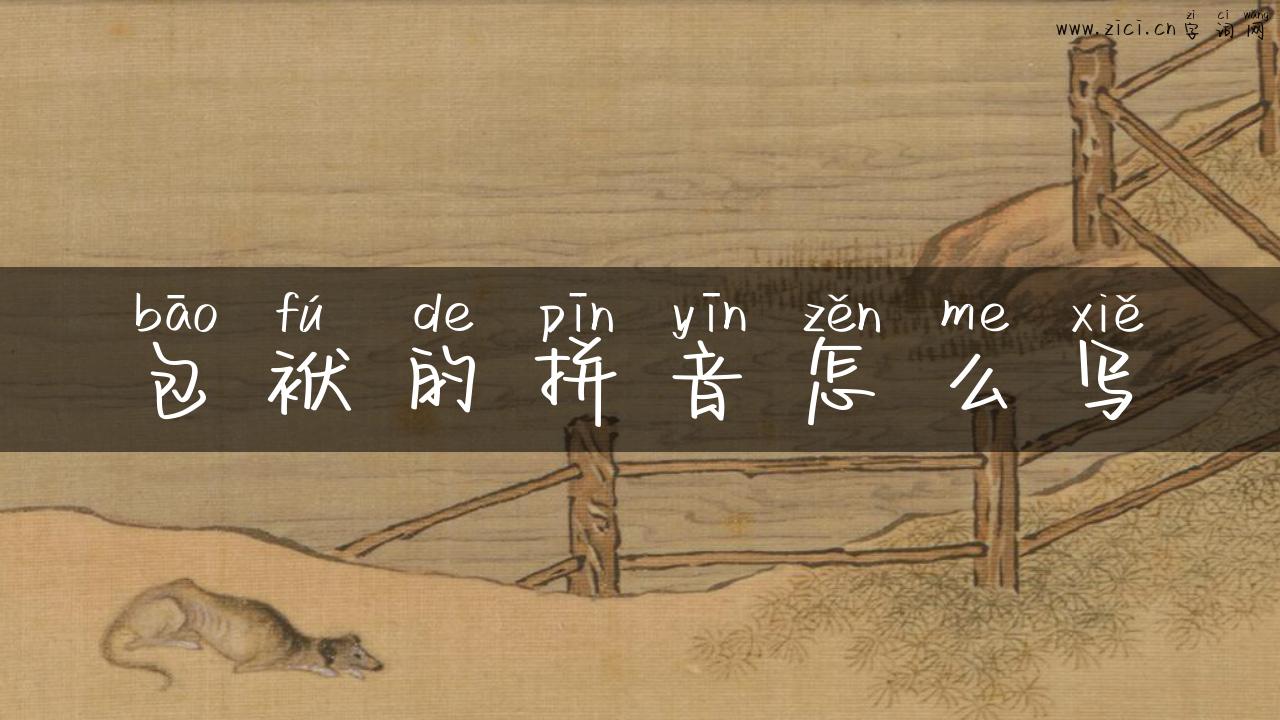 zi ci wang
www.zici.cn 字 词 网
bāo fú de pīn yīn zěn me xiě
包 袱 的 拼 音 怎 么 写